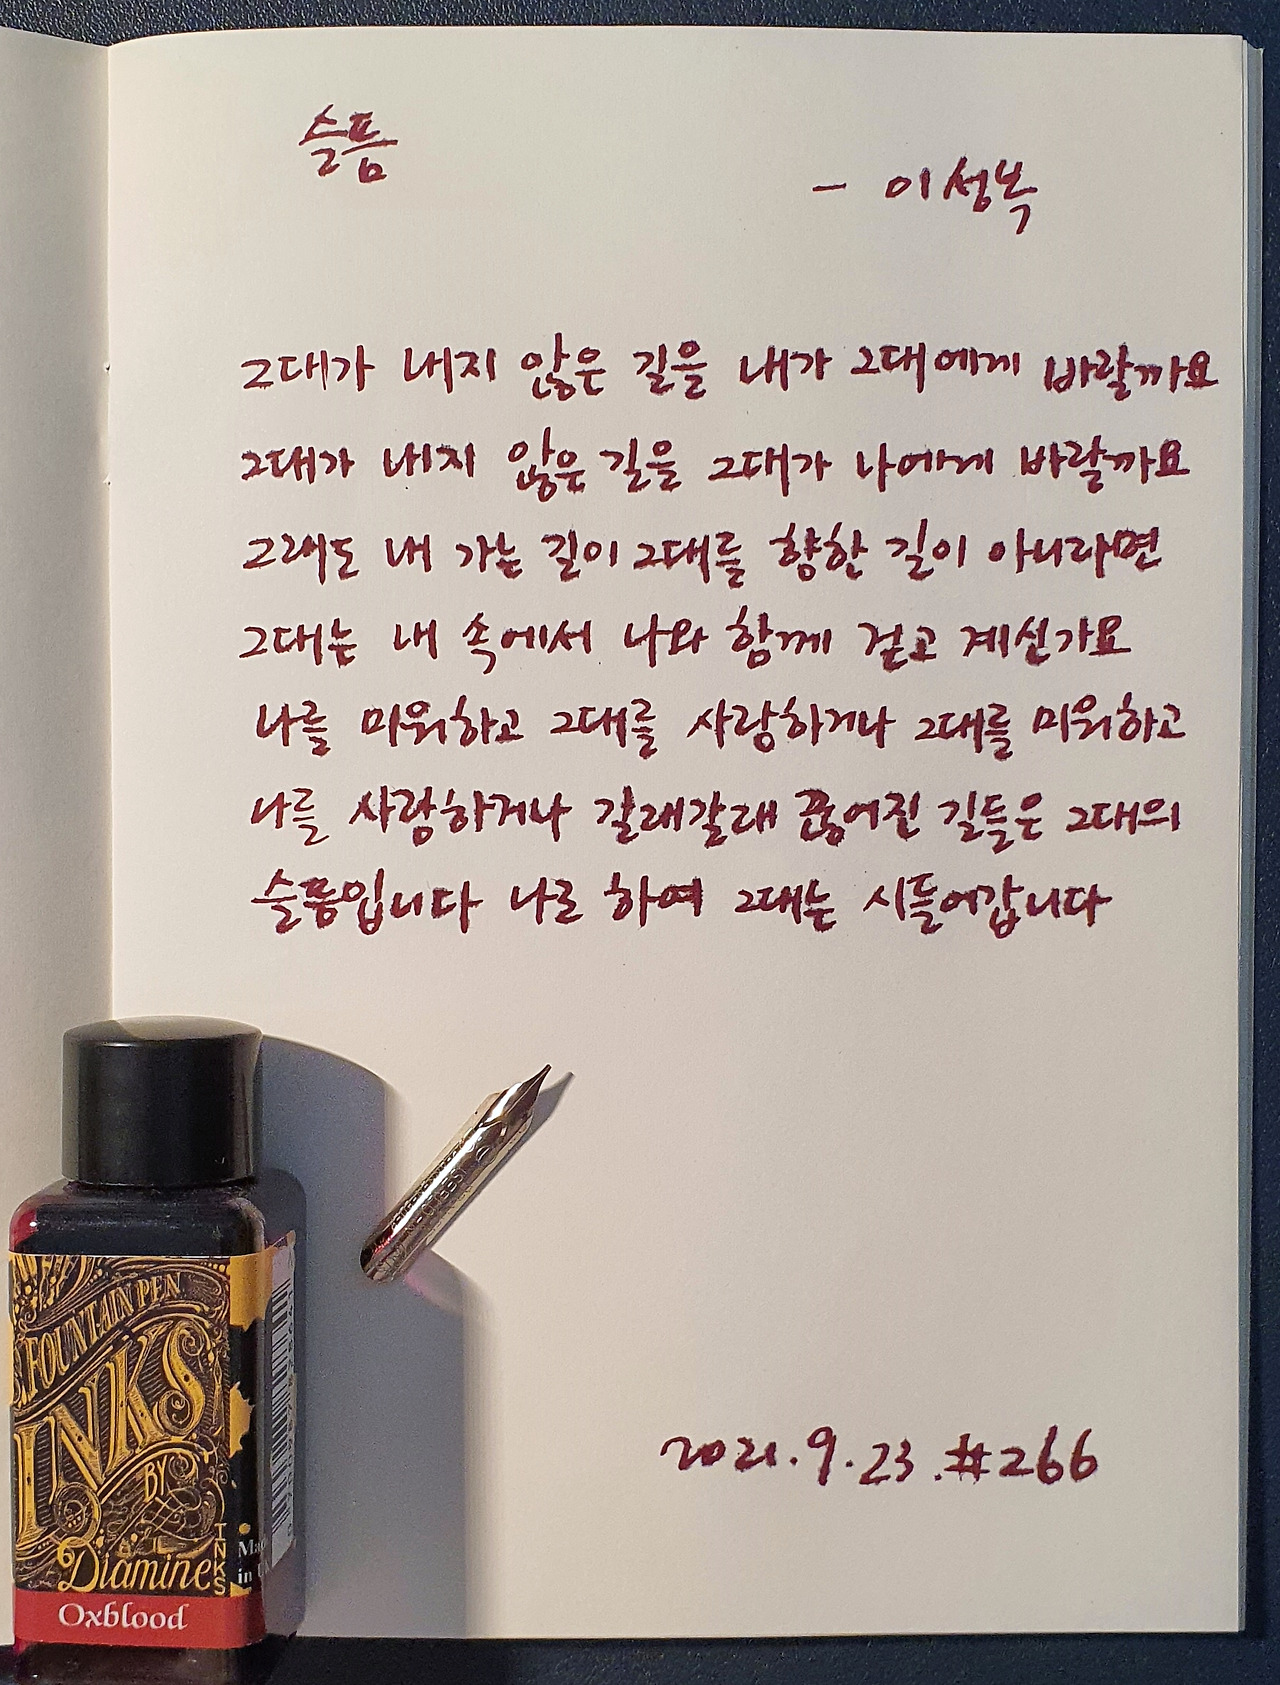 슬픔
- 이성복
그대가 내지 않은 길을 내가 그대에게 바랄까요
그대가 내지 않은 길을 그대가 나에게 바랄까요
그래도 내 가는 길이 그대를 향한 길이 아니라면
그대는 내 속에서 나와 함께 걷고 계신가요
나를 미워하고 그대를 사랑하거나 그대를 미워하고
나를 사랑하거나 갈래갈래 끊어진 길들은 그대의
슬픔입니다 나로 하여 그대는 시들어갑니다
2021.9.23.#266
FOUNTAIN PEN
INKS
BY
Diamine
INKS
Oxblood